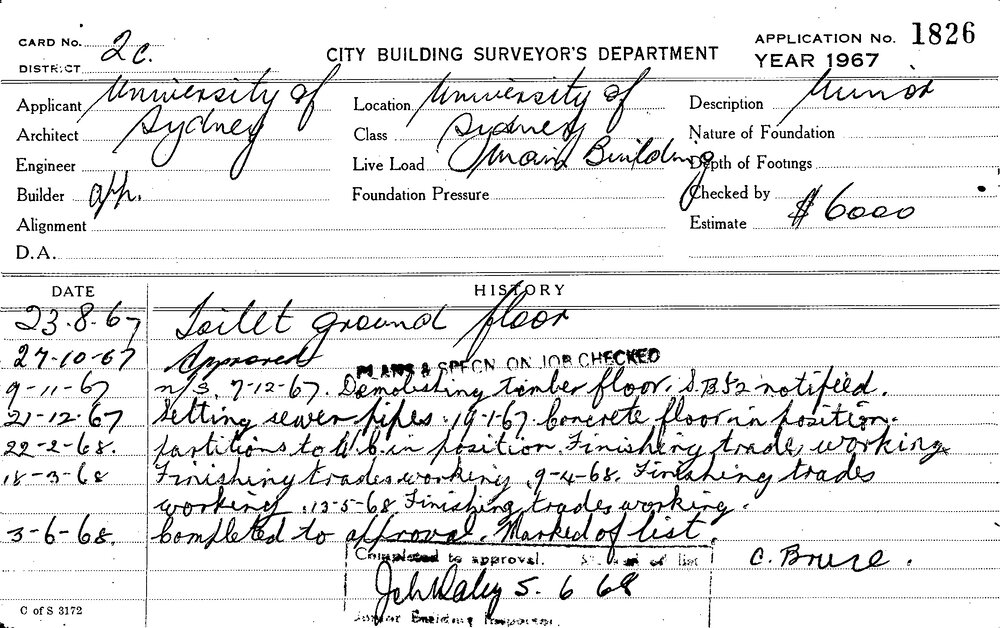 CARD No. 2c.
DISTRICT
CITY BUILDING SURVEYOR'S DEPARTMENT
APPLICATION No. 1826
YEAR 1967
Applicant University of
Architect Sydney
Engineer
Builder app.
Alignment
D.A.
Location University of
Class Sydney
Live Load Main Building
Foundation Pressure
Description Minor
Nature of Foundation
Depth of Footings
Checked by
Estimate $ 6000
DATE HISTORY
23.8.67 Toilet ground floor
27-10-67 Approved PLANS & SPECN ON JOB CHECKED
9-11-67 n/s. 7-12-67. Demolishing timber floor. S.B52 notified.
21-12-67 Setting sewer pipes. 19-1-67. Concrete floor in position.
22-2-68. partitions to in position. Finishing trade working
18-3-68 Finishing trades working. 9-4-68. Finishing trades
working. 13-5-68. Finishing trades working.
3-6-68. Completed to approval. Marked of list.
Completed to approval. of list
C. Bruce.
5. 6 68
Building
C of S 3172